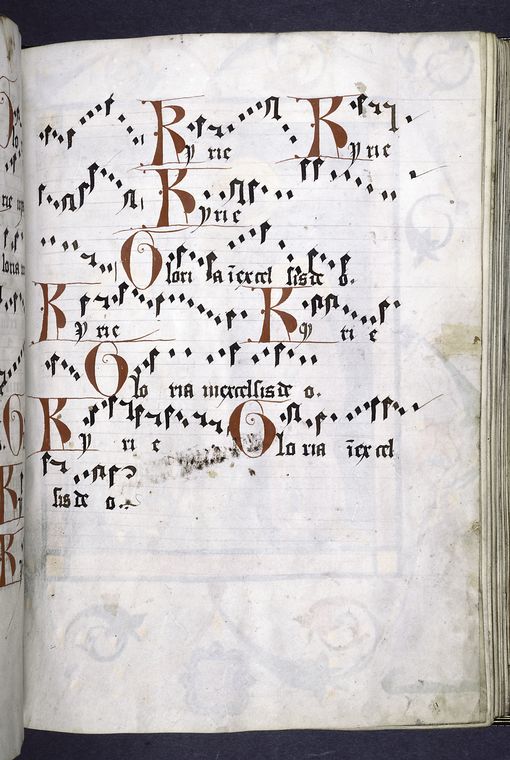 Ky rie Ky rie
Ky ri e
Glori a ī excel sis de o.
Ky rie Ky ri e
Glo ria in excelsis de o.
Ky ri e Glo ria ī ex cel
sis de o.